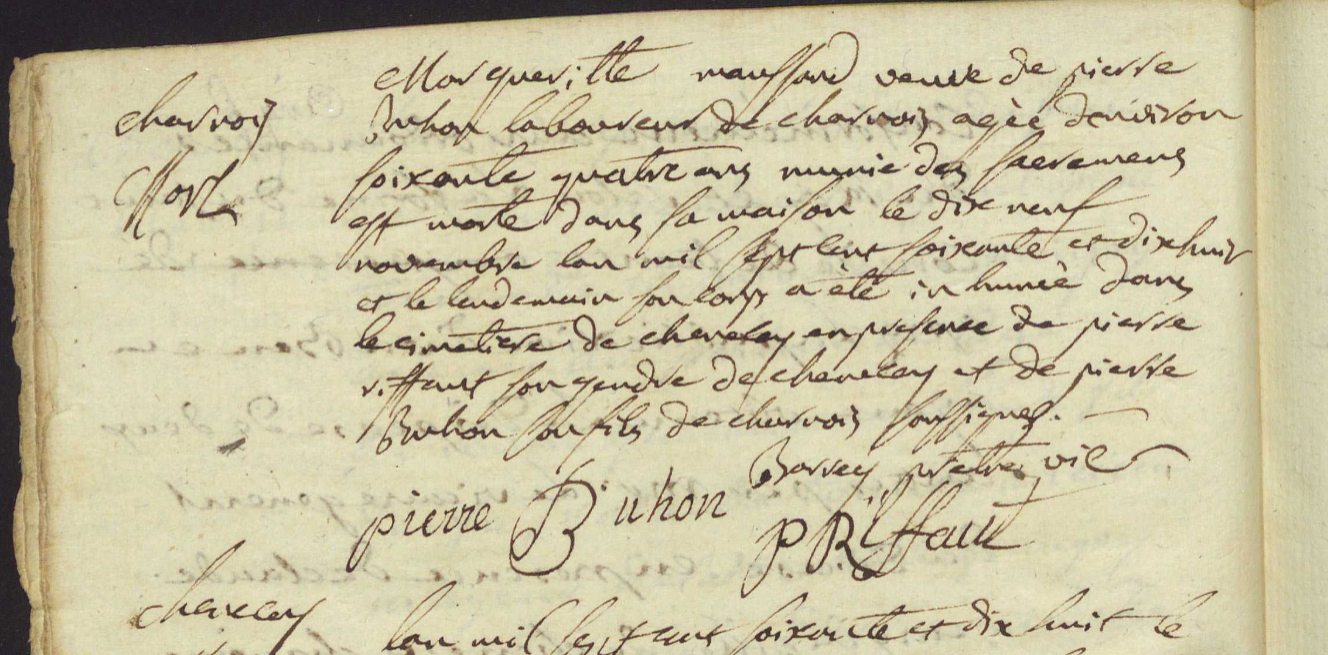 Margueritte mauffard veuve de pierre
charroiz
Buhon laboureur de charroiz agèe d'environ
Mort
soixante quatre ans munie des sacremens
est morte dans sa maison le dix neuf
novembre lan mil sept cent soixante et dixhuit
et le lendemain son corps a èté inhumè dans
le cimetiere de chenecey en presence de pierre
riffaut son gendre de chenecey et de pierre
Buhon son fils de charroiz soussignes.
Barrey prètre vic
pierre Buhon
P Riffaut
chenecey
lan mil sept cent soixante et dix huit le